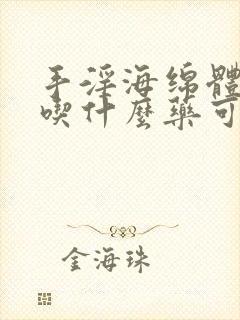 手淫海绵體
喫什麼藥可
金海珠